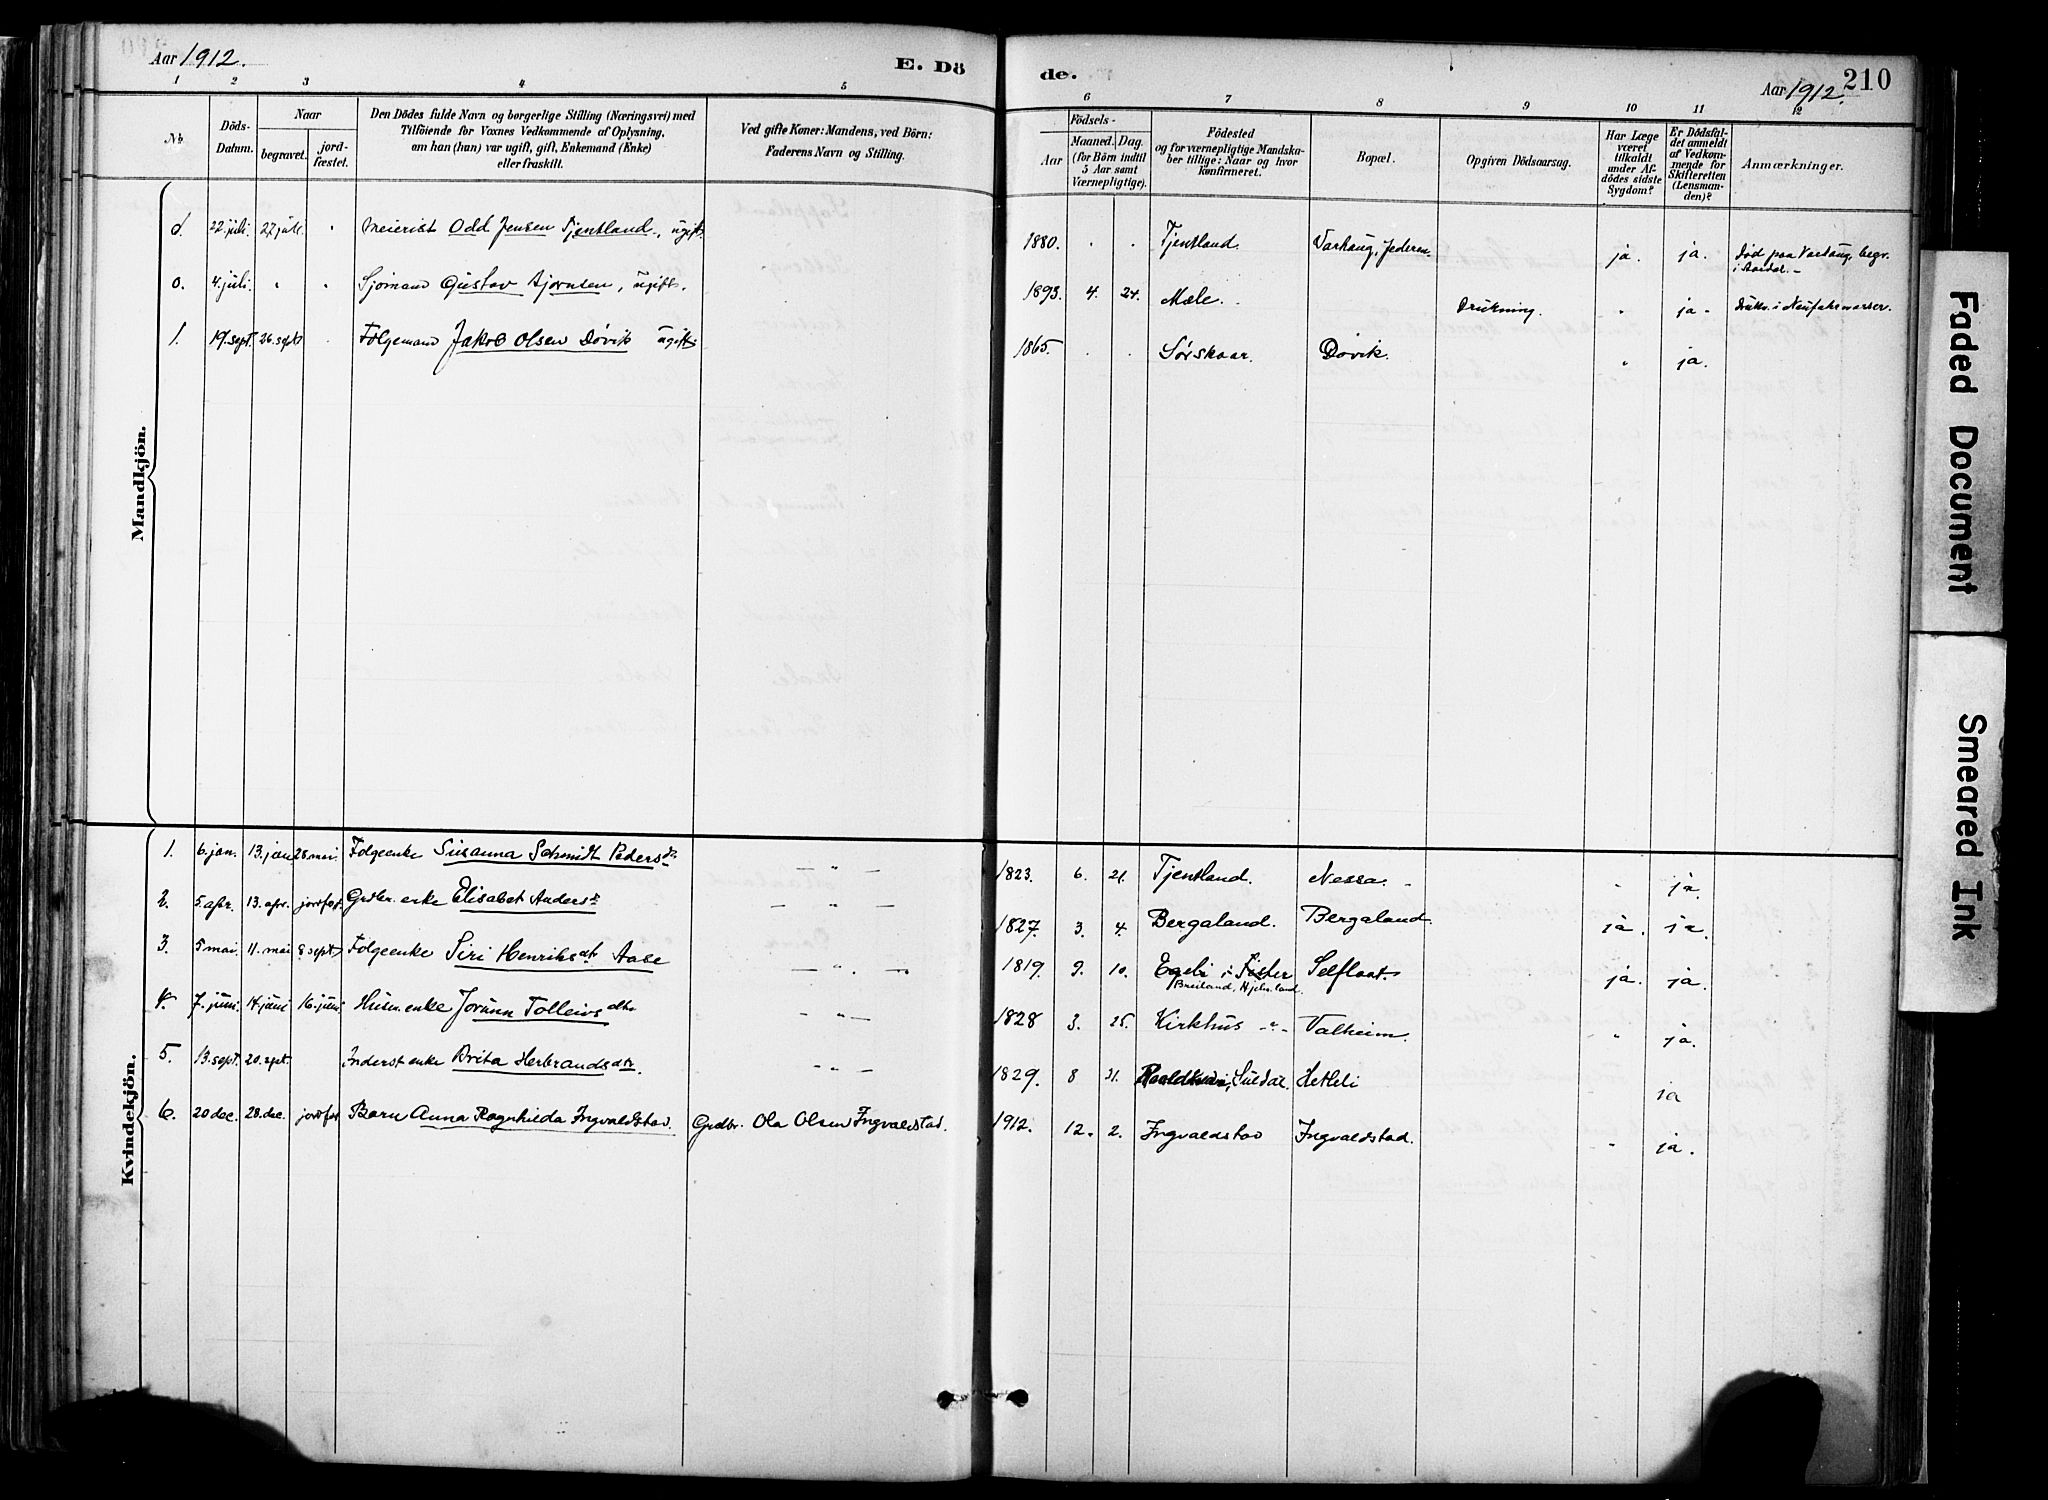 Aar 1912. E. Dö de. Aar 1912. 210
1 2 3 4 5 6 7 8 9 10 11 12
No. Döds-Datum. Naar begravet. jord-fæstet.
Den Dödes fulde Navn og borgerlige Stilling (Næringsvei) med
Tilföiende for Voxnes Vedkommende af Oplysning,
om han (hun) var ugift, gift, Enkemand (Enke)
eller fraskilt.
Ved gifte Koner: Mandens, ved Börn:
Faderens Navn og Stilling.
Födsels-
Aar Maaned. Dag.
(for Börn indtil
5 Aar samt
Værnepligtige).
Födested
og for værnepligtige Mandska-
ber tillige: Naar og hvor
konfirmeret.
Bopæl.
Opgiven Dödsaarsag.
Har Læge
været
tilkaldt
under Af-
dödes sidste
Sygdom?
Er Dödsfal-
det anmeldt
af Vedkom-
mende for
Skifteretten
(Lensman-
den)?
Anmærkninger.
Mandkjön.
d. 22. juli. 27 juli. " Meierist Odd Jensen Tjentland, ugift. 1880. " " Tjentland. Varhaug, Jæderen. ja. ja. Död paa Varhaug, begr.
i Aardal. -
o. 4. juli. " " Sjömand Gustav Bjørnsen, ugift. 1893. 4. 24. Mæle. Drukning. " ja. Drukn. i Neufahrwasser.
1. 19. sept. 26. sept. Følgemand Jakob Olsen Døvik ugift. 1865. " " Sørskaar. Døvik. " ja.
Kvindekjön.
1. 6. jan. 13. jan 28. mai. Følgeenke Susanna Schmidt Pedersdtr. — " — 1823. 6. 21. Tjentland. Nessa. " ja.
2. 5. apr. 13. apr. jordfæst. Grdbr. enke Elisabet Andersdtr. — " — 1827. 3. 4. Bergaland. Bergaland. ja. ja.
3. 5 mai. 11. mai 8 sept. Følgeenke Siri Henriksdtr Aase — " — 1819. 9. 10. Egeli i Fister Selfloot. ja. ja.
Breiland, Hjelmeland.
4. 7. juni. 14. juni 16. juni. Husm. enke Jorunn Tolleivsdtr. — " — 1828 3. 25. Kirkhus - " - Valheim. " ja.
5. 13. sept. 20. sept. Inderst enke Brita Herbrandsdtr. — " — 1829. 8 31. Suldal. Hetleli ja
6. 20 dec. 28. dec. jordfæst Barn Anna Ragnhilda Ingvaldstad. Grdbr. Ola Olsen Ingvaldstad. 1912. 12. 2. Ingvaldstad Ingvaldstad. " ja.
Faded Document
Smeared Ink